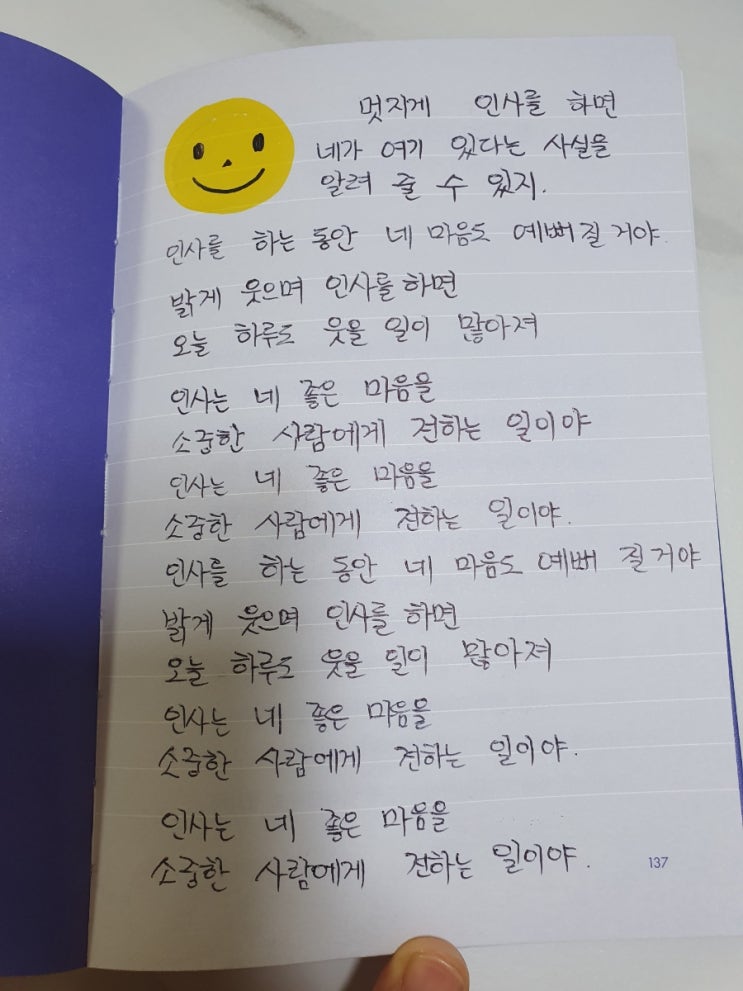 멋지게 인사를 하면
네가 여기 있다는 사실을
알려 줄 수 있지.
인사를 하는 동안 네 마음도 예뻐질 거야.
밝게 웃으며 인사를 하면
오늘 하루도 웃을 일이 많아져
인사는 네 좋은 마음을
소중한 사람에게 전하는 일이야
인사는 네 좋은 마음을
소중한 사람에게 전하는 일이야.
인사를 하는 동안 네 마음도 예뻐 질 거야
밝게 웃으며 인사를 하면
오늘 하루도 웃을 일이 많아져
인사는 네 좋은 마음을
소중한 사람에게 전하는 일이야.
인사는 네 좋은 마음을
소중한 사람에게 전하는 일이야.
137